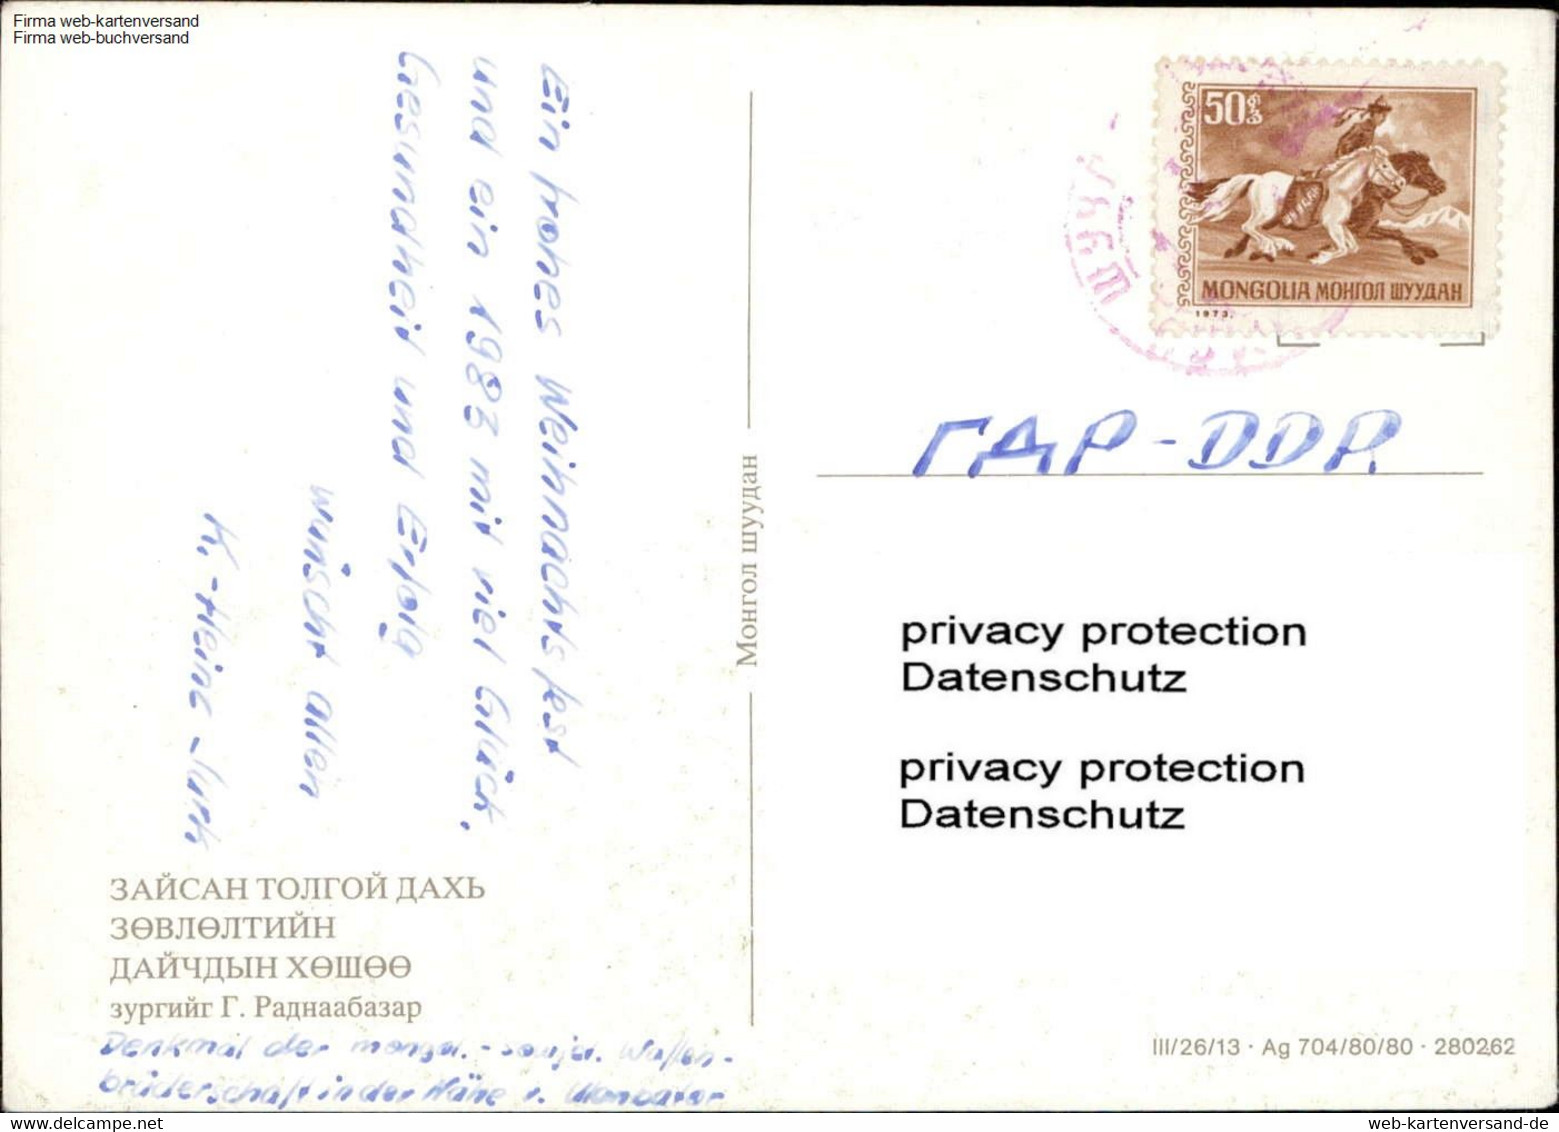 Firma web-kartenversand
Firma web-buchversand
Ein frohes Weihnachtsfest
und ein 1983 mit viel Glück,
Gesundheit und Erfolg
wünscht allen
K.-Heinz Jurk
ЗАЙСАН ТОЛГОЙ ДАХЬ
ЗӨВЛӨЛТИЙН
ДАЙЧДЫН ХӨШӨӨ
зургийг Г. Раднаабазар
Denkmal der mongol.-sowjet. Waffen-
brüderschaft in der Nähe v. Ulanbator
Монгол шуудан
50
MONGOLIA МОНГОЛ ШУУДАН
1973.
ГДР-DDR
privacy protection
Datenschutz
privacy protection
Datenschutz
III/26/13 · Ag 704/80/80 · 280262
www.web-kartenversand.de
web-kartenversand-de